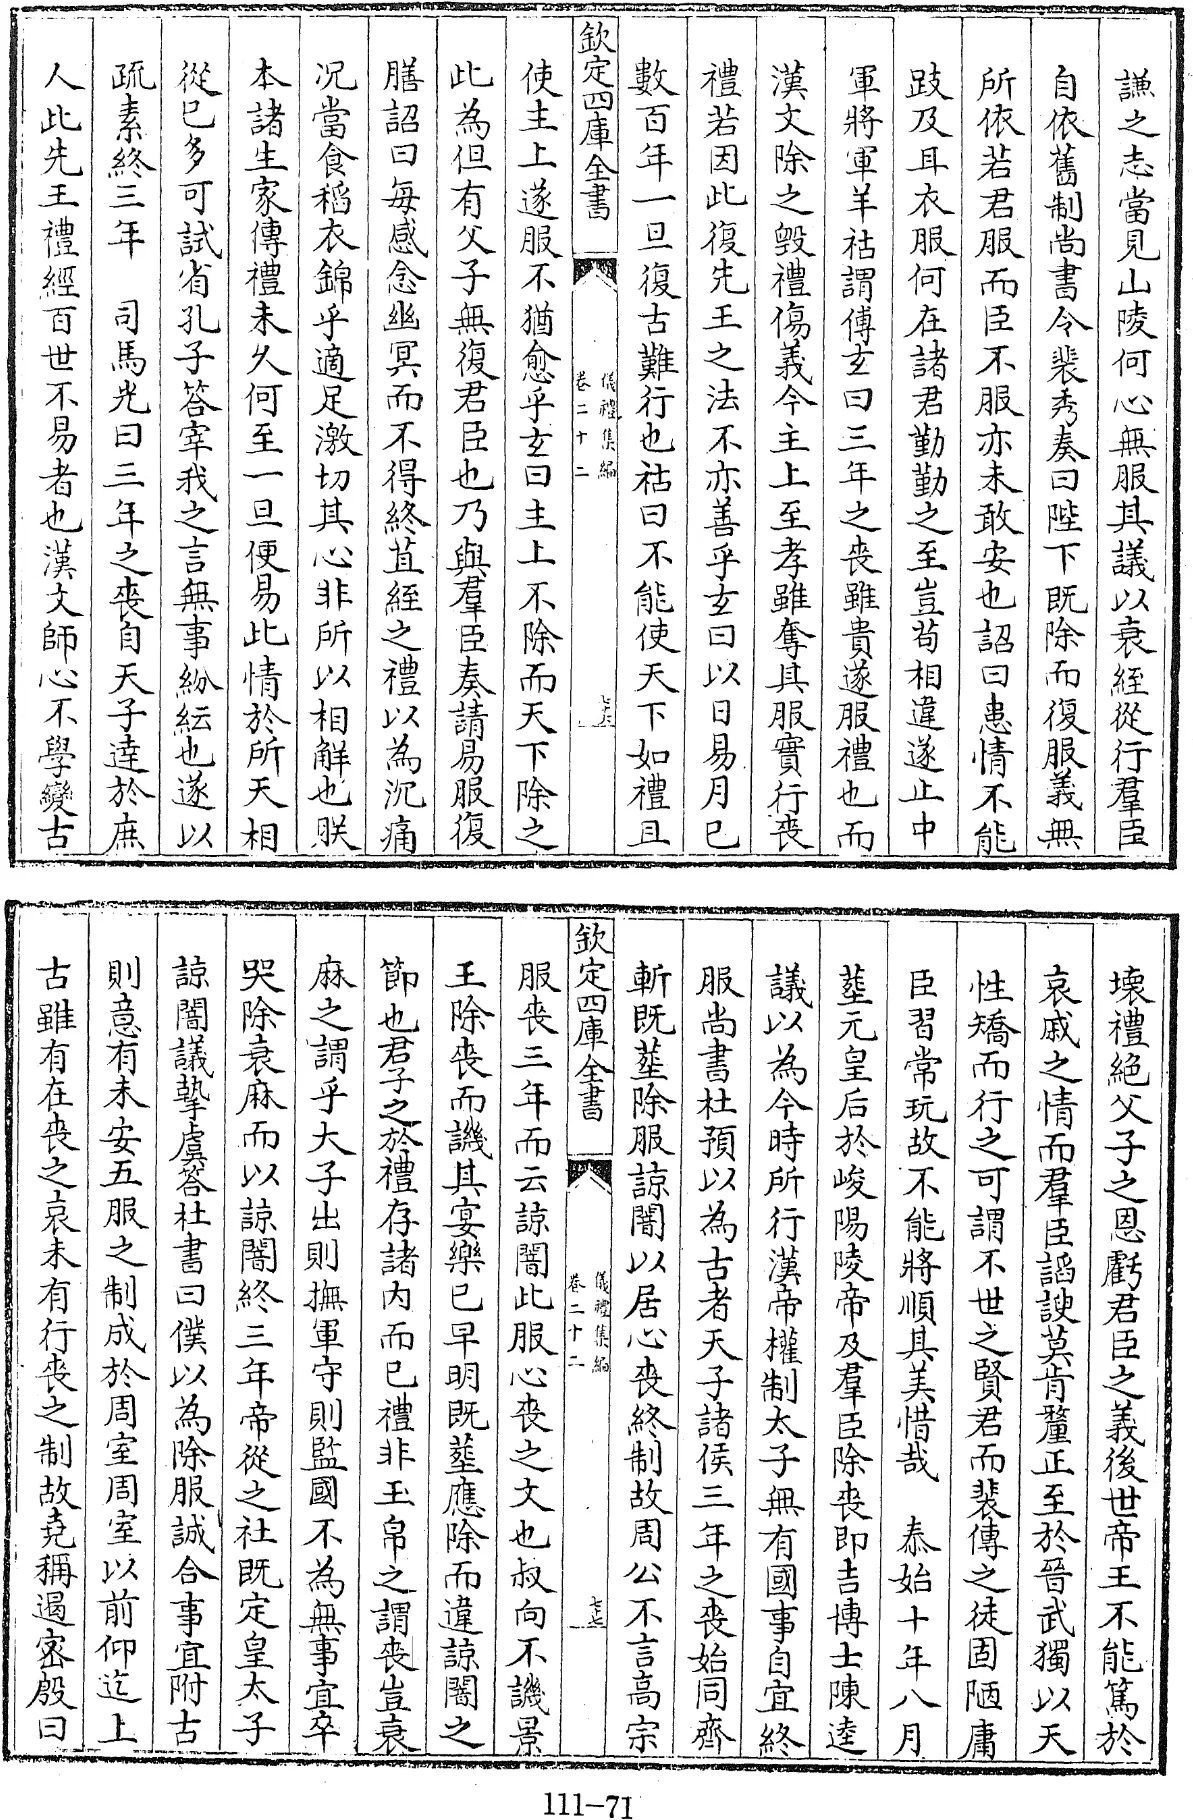 謙之志當見山陵何心無服其議以衰絰從行羣臣
自依舊制尚書令裴秀奏曰陛下既除而復服義無
所依若君服而臣不服亦未敢安也詔曰患情不能
跂及耳衣服何在諸君勤勤之至豈茍相違遂止中
軍將軍羊祜謂傅玄曰三年之喪雖貴遂服禮也而
漢文除之毀禮傷義今主上至孝雖奪其服實行喪
禮若因此復先王之法不亦善乎玄曰以日易月已
數百年一旦復古難行也祜曰不能使天下如禮且
欽定四庫全書
儀禮集編
卷二十二
七十六
使主上遂服不猶愈乎玄曰主上不除而天下除之
此為但有父子無復君臣也乃與羣臣奏請易服復
膳詔曰每感念幽冥而不得終苴絰之禮以為沉痛
况當食稻衣錦乎適足激切其心非所以相解也朕
本諸生家傳禮未久何至一旦便易此情於所天相
從已多可試省孔子答宰我之言無事紛紜也遂以
疏素終三年　司馬光曰三年之喪自天子達於庶
人此先王禮經百世不易者也漢文師心不學變古
壞禮絶父子之恩虧君臣之義後世帝王不能篤於
哀戚之情而羣臣諂諛莫肯釐正至於晉武獨以天
性矯而行之可謂不世之賢君而裴傅之徒固陋庸
臣習常玩故不能將順其美惜哉　泰始十年八月
塟元皇后於峻陽陵帝及羣臣除喪即吉博士陳逵
議以為今時所行漢帝權制太子無有國事自宜終
服尚書杜預以為古者天子諸侯三年之喪始同齊
斬既塟除服諒闇以居心喪終制故周公不言高宗
欽定四庫全書
儀禮集編
卷二十二
七十七
服喪三年而云諒闇此服心喪之文也叔向不譏景
王除喪而譏其宴樂已早明既塟應除而違諒闇之
節也君子之於禮存諸內而已禮非玉帛之謂喪豈衰
麻之謂乎大子出則撫軍守則監國不為無事宜卒
哭除衰麻而以諒闇終三年帝從之社既定皇太子
諒闇議摯虞答杜書曰僕以為除服誠合事宜附古
則意有未安五服之制成於周室周室以前仰迄上
古雖有在喪之哀未有行喪之制故堯稱遏密殷曰
111-71